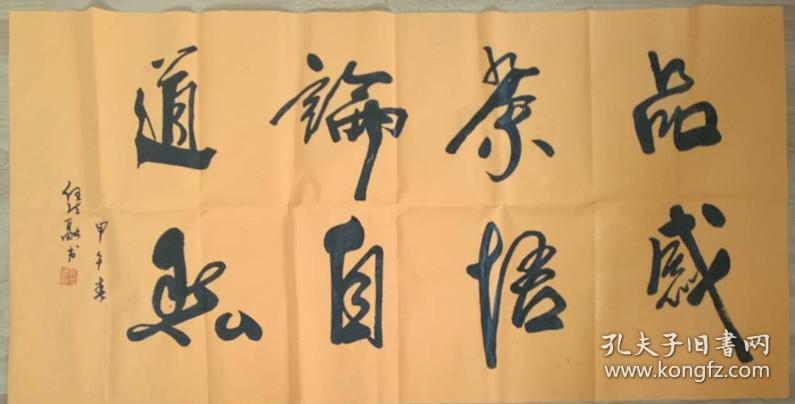 品茶論道
感悟自然
甲午春
任法融书
孔夫子旧書网
www.kongfz.com